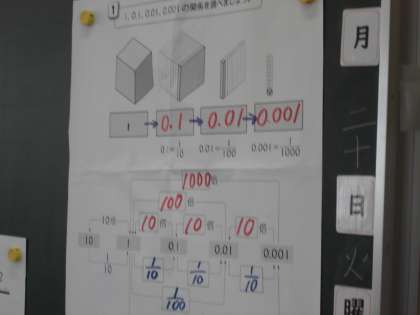 1 1, 0.1, 0.01, 0.001の関係を調べましょう
1 0.1 0.01 0.001
0.1=1/10 0.01=1/100 0.001=1/1000
1000倍
100倍
10倍 10倍 10倍 10倍
10 1 0.1 0.01 0.001
1/10 1/10 1/10 1/10
1/100
月
二十
日
火
曜